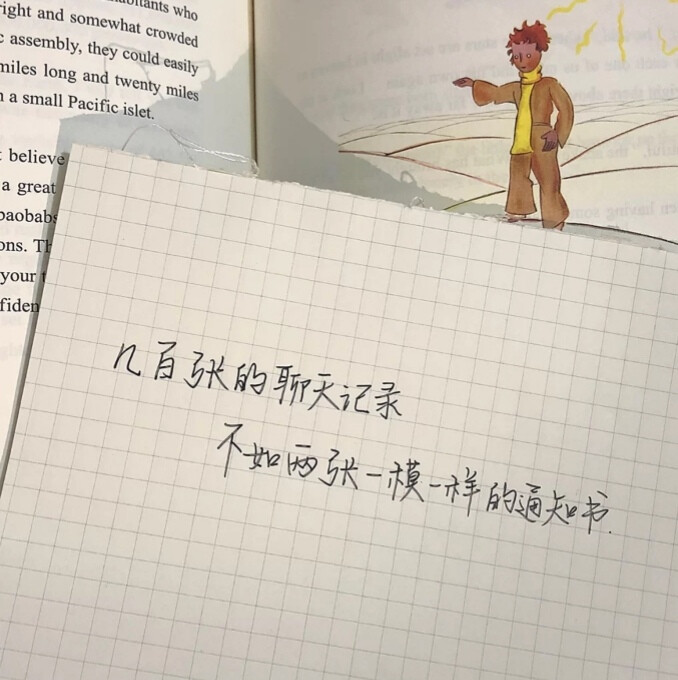 abitants who
right and somewhat crowded
c assembly, they could easily
miles long and twenty miles
n a small Pacific islet.
t believe
a great
baobabs
ons. Th
your
fiden
几百张的聊天记录
不如两张一模一样的通知书.